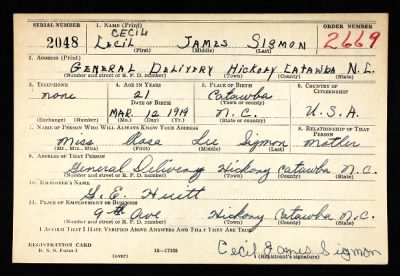 SERIAL NUMBER 1. NAME (Print) ORDER NUMBER
CECIL
2048 CECIL JAMES SIGMON 2669
(First) (Middle) (Last)
2. ADDRESS (Print)
GENERAL DELIVERY HICKORY CATAWBA N.C.
(Number and street or R. F. D. number) (Town) (County) (State)
3. TELEPHONE 4. AGE IN YEARS 5. PLACE OF BIRTH 6. COUNTRY OF CITIZENSHIP
none 21 Catawba
DATE OF BIRTH (Town or county)
MAR. 12 1919 N.C. U.S.A.
(Exchange) (Number) (Mo.) (Day) (Yr.) (State or country)
7. NAME OF PERSON WHO WILL ALWAYS KNOW YOUR ADDRESS 8. RELATIONSHIP OF THAT PERSON
Miss Rosa Lee Sigmon Mother
(Mr., Mrs., Miss) (First) (Middle) (Last)
9. ADDRESS OF THAT PERSON
General Delivery Hickory Catawba N.C.
(Number and street or R. F. D. number) (Town) (County) (State)
10. EMPLOYER'S NAME
G. E. Huitt
11. PLACE OF EMPLOYMENT OR BUSINESS
9th Ave Hickory Catawba N.C.
(Number and street or R. F. D. number) (Town) (County) (State)
I AFFIRM THAT I HAVE VERIFIED ABOVE ANSWERS AND THAT THEY ARE TRUE.
REGISTRATION CARD
D. S. S. Form 1 16—17105 Cecil James Sigmon
(over) (Registrant's signature)